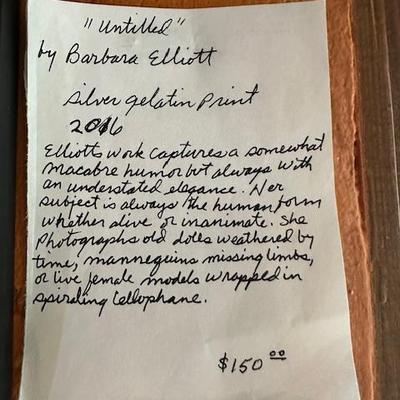 "Untitled"
by Barbara Elliott
Silver gelatin Print
2016
Elliott's work captures a somewhat
macabre humor but always with
an understated elegance. Her
subject is always the human form
whether alive or inanimate. She
photographs old dolls weathered by
time, mannequins missing limbs,
or live female models wrapped in
spiraling cellophane.
$150.00